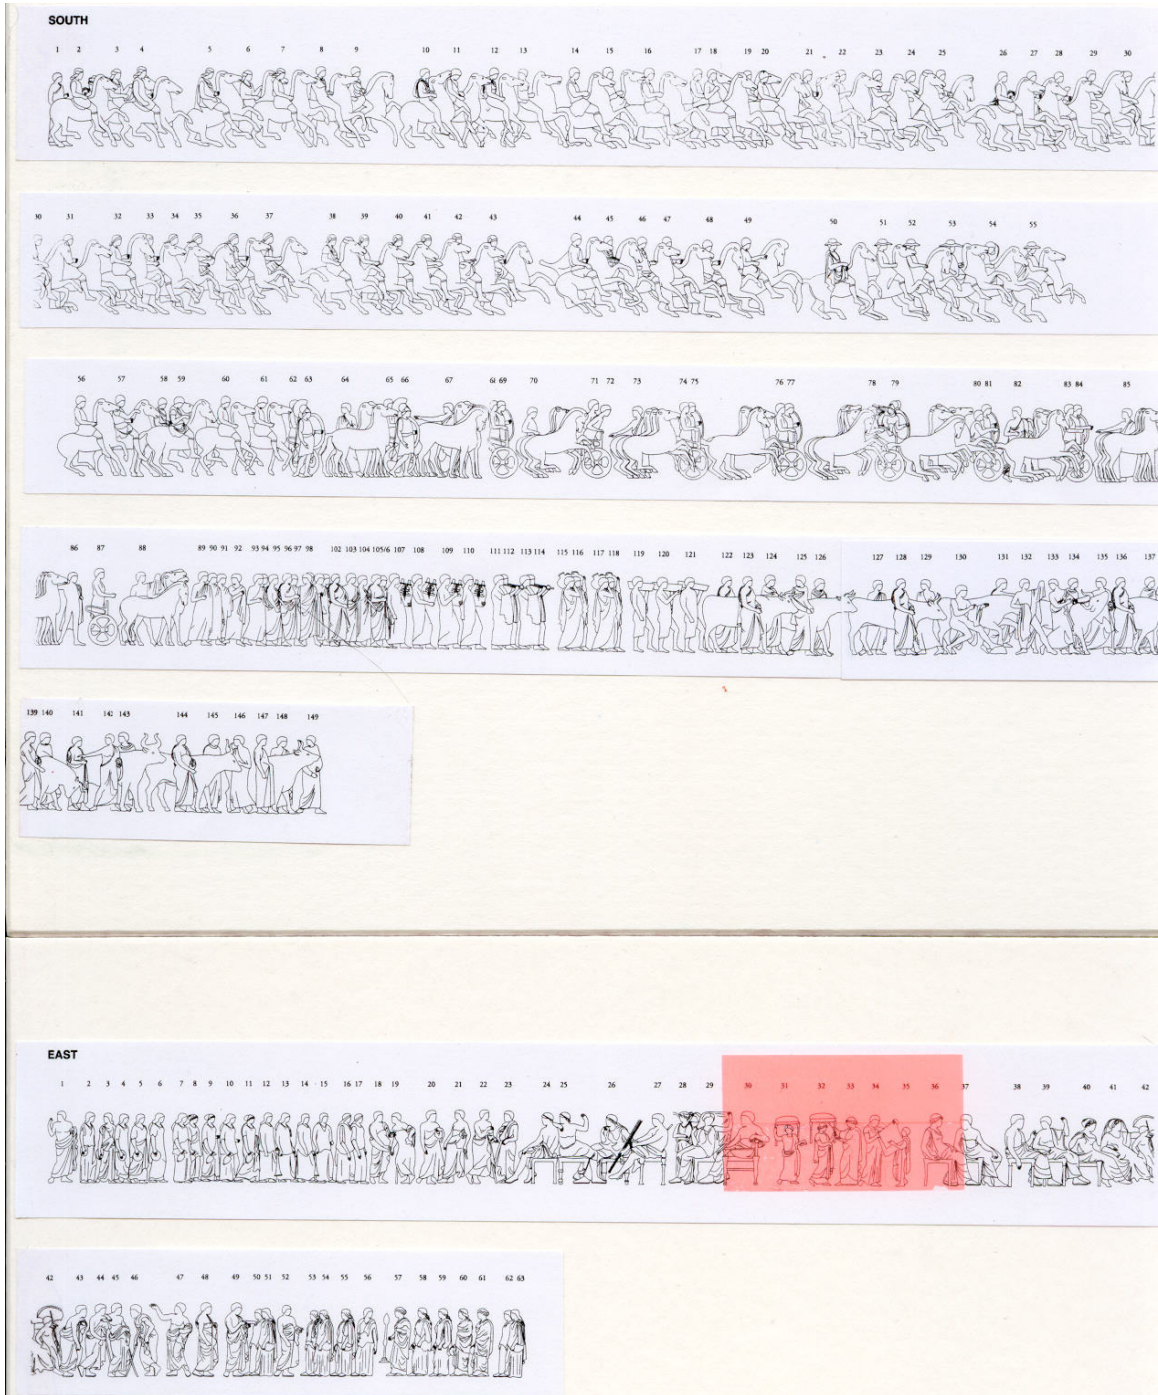 SOUTH
1 2 3 4 5 6 7 8 9 10 11 12 13 14 15 16 17 18 19 20 21 22 23 24 25 26 27 28 29 30
30 31 32 33 34 35 36 37 38 39 40 41 42 43 44 45 46 47 48 49 50 51 52 53 54 55
56 57 58 59 60 61 62 63 64 65 66 67 68 69 70 71 72 73 74 75 76 77 78 79 80 81 82 83 84 85
86 87 88 89 90 91 92 93 94 95 96 97 98 102 103 104 105/6 107 108 109 110 111 112 113 114 115 116 117 118 119 120 121 122 123 124 125 126 127 128 129 130 131 132 133 134 135 136 137
139 140 141 142 143 144 145 146 147 148 149
EAST
1 2 3 4 5 6 7 8 9 10 11 12 13 14 15 16 17 18 19 20 21 22 23 24 25 26 27 28 29 30 31 32 33 34 35 36 37 38 39 40 41 42
42 43 44 45 46 47 48 49 50 51 52 53 54 55 56 57 58 59 60 61 62 63